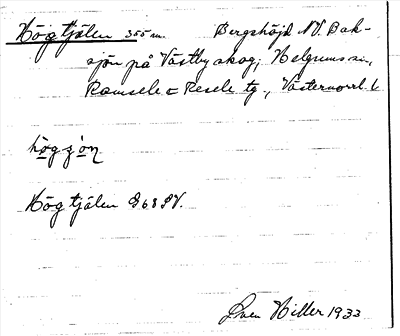 Högtjälen 355 m. Bergshöjd NV. Bak-
sjön på Västby skog; Helgums sn,
Ramsele o Resele tg, Västernorrl. l.
högzon
Högtjälen G 68 SV.
Sven Hiller 1933